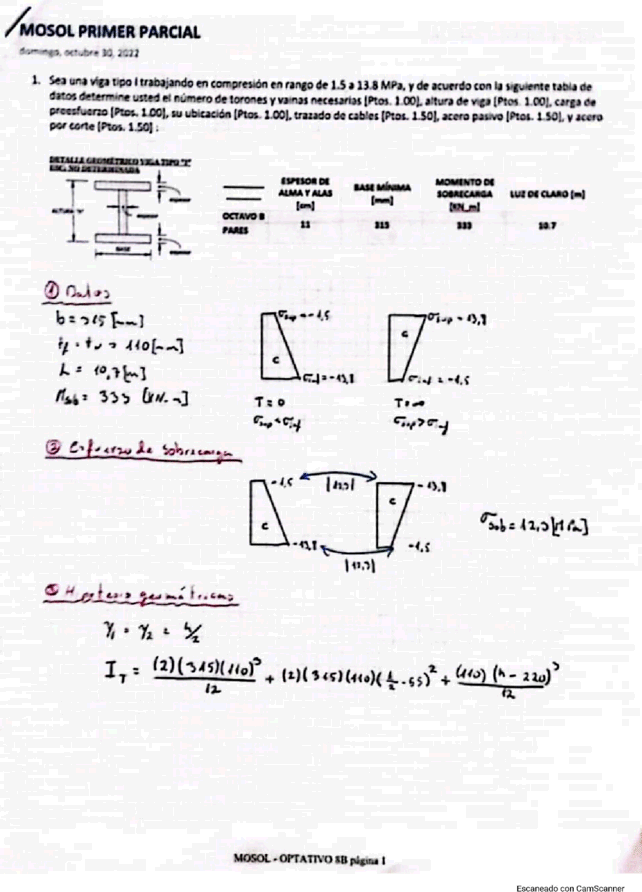 MOSOL PRIMER PARCIAL
domingo, octubre 30, 2022
1. Sea una viga tipo I trabajando en compresión en rango de 1.5 a 13.8 MPa, y de acuerdo con la siguiente tabla de
datos determine usted el número de torones y vainas necesarias [Ptos. 1.00], altura de viga [Ptos. 1.00], carga de
preesfuerzo [Ptos. 1.00], su ubicación [Ptos. 1.00], trazado de cables [Ptos. 1.50], acero pasivo [Ptos. 1.50], y acero
por corte [Ptos. 1.50] :
DETALLE GEOMÉTRICO VIGA TIPO "I"
ESC. NO DETERMINADA
ALTURA "h"
BASE
ESPESOR DE ALMA Y ALAS [cm] BASE MÍNIMA [mm] MOMENTO DE SOBRECARGA [KN_m] LUZ DE CLARO [m]
OCTAVO B PARES 11 315 333 10.7
① Datos
b = 315 [mm]
tf = tw = 110 [mm]
L = 10,7 [m]
Msb = 333 [KN.m]
σsup = -1,5
C
σinf = -13,8
T = 0
σsup < σinf
σsup = -13,8
C
σinf = -1,5
T = ∞
σsup > σinf
② Esfuerzo de sobrecarga
-1,5 |12,3| -13,8
C C
-13,8 |12,3| -1,5
σsob = 12,3 [MPa]
③ Hipótesis geométricas
Y₁ = Y₂ = h/2
I_T = (2)(315)(110)³/12 + (2)(315)(110)(h/2 - 55)² + (110)(h - 220)³/12
MOSOL - OPTATIVO 8B página 1
Escaneado con CamScanner